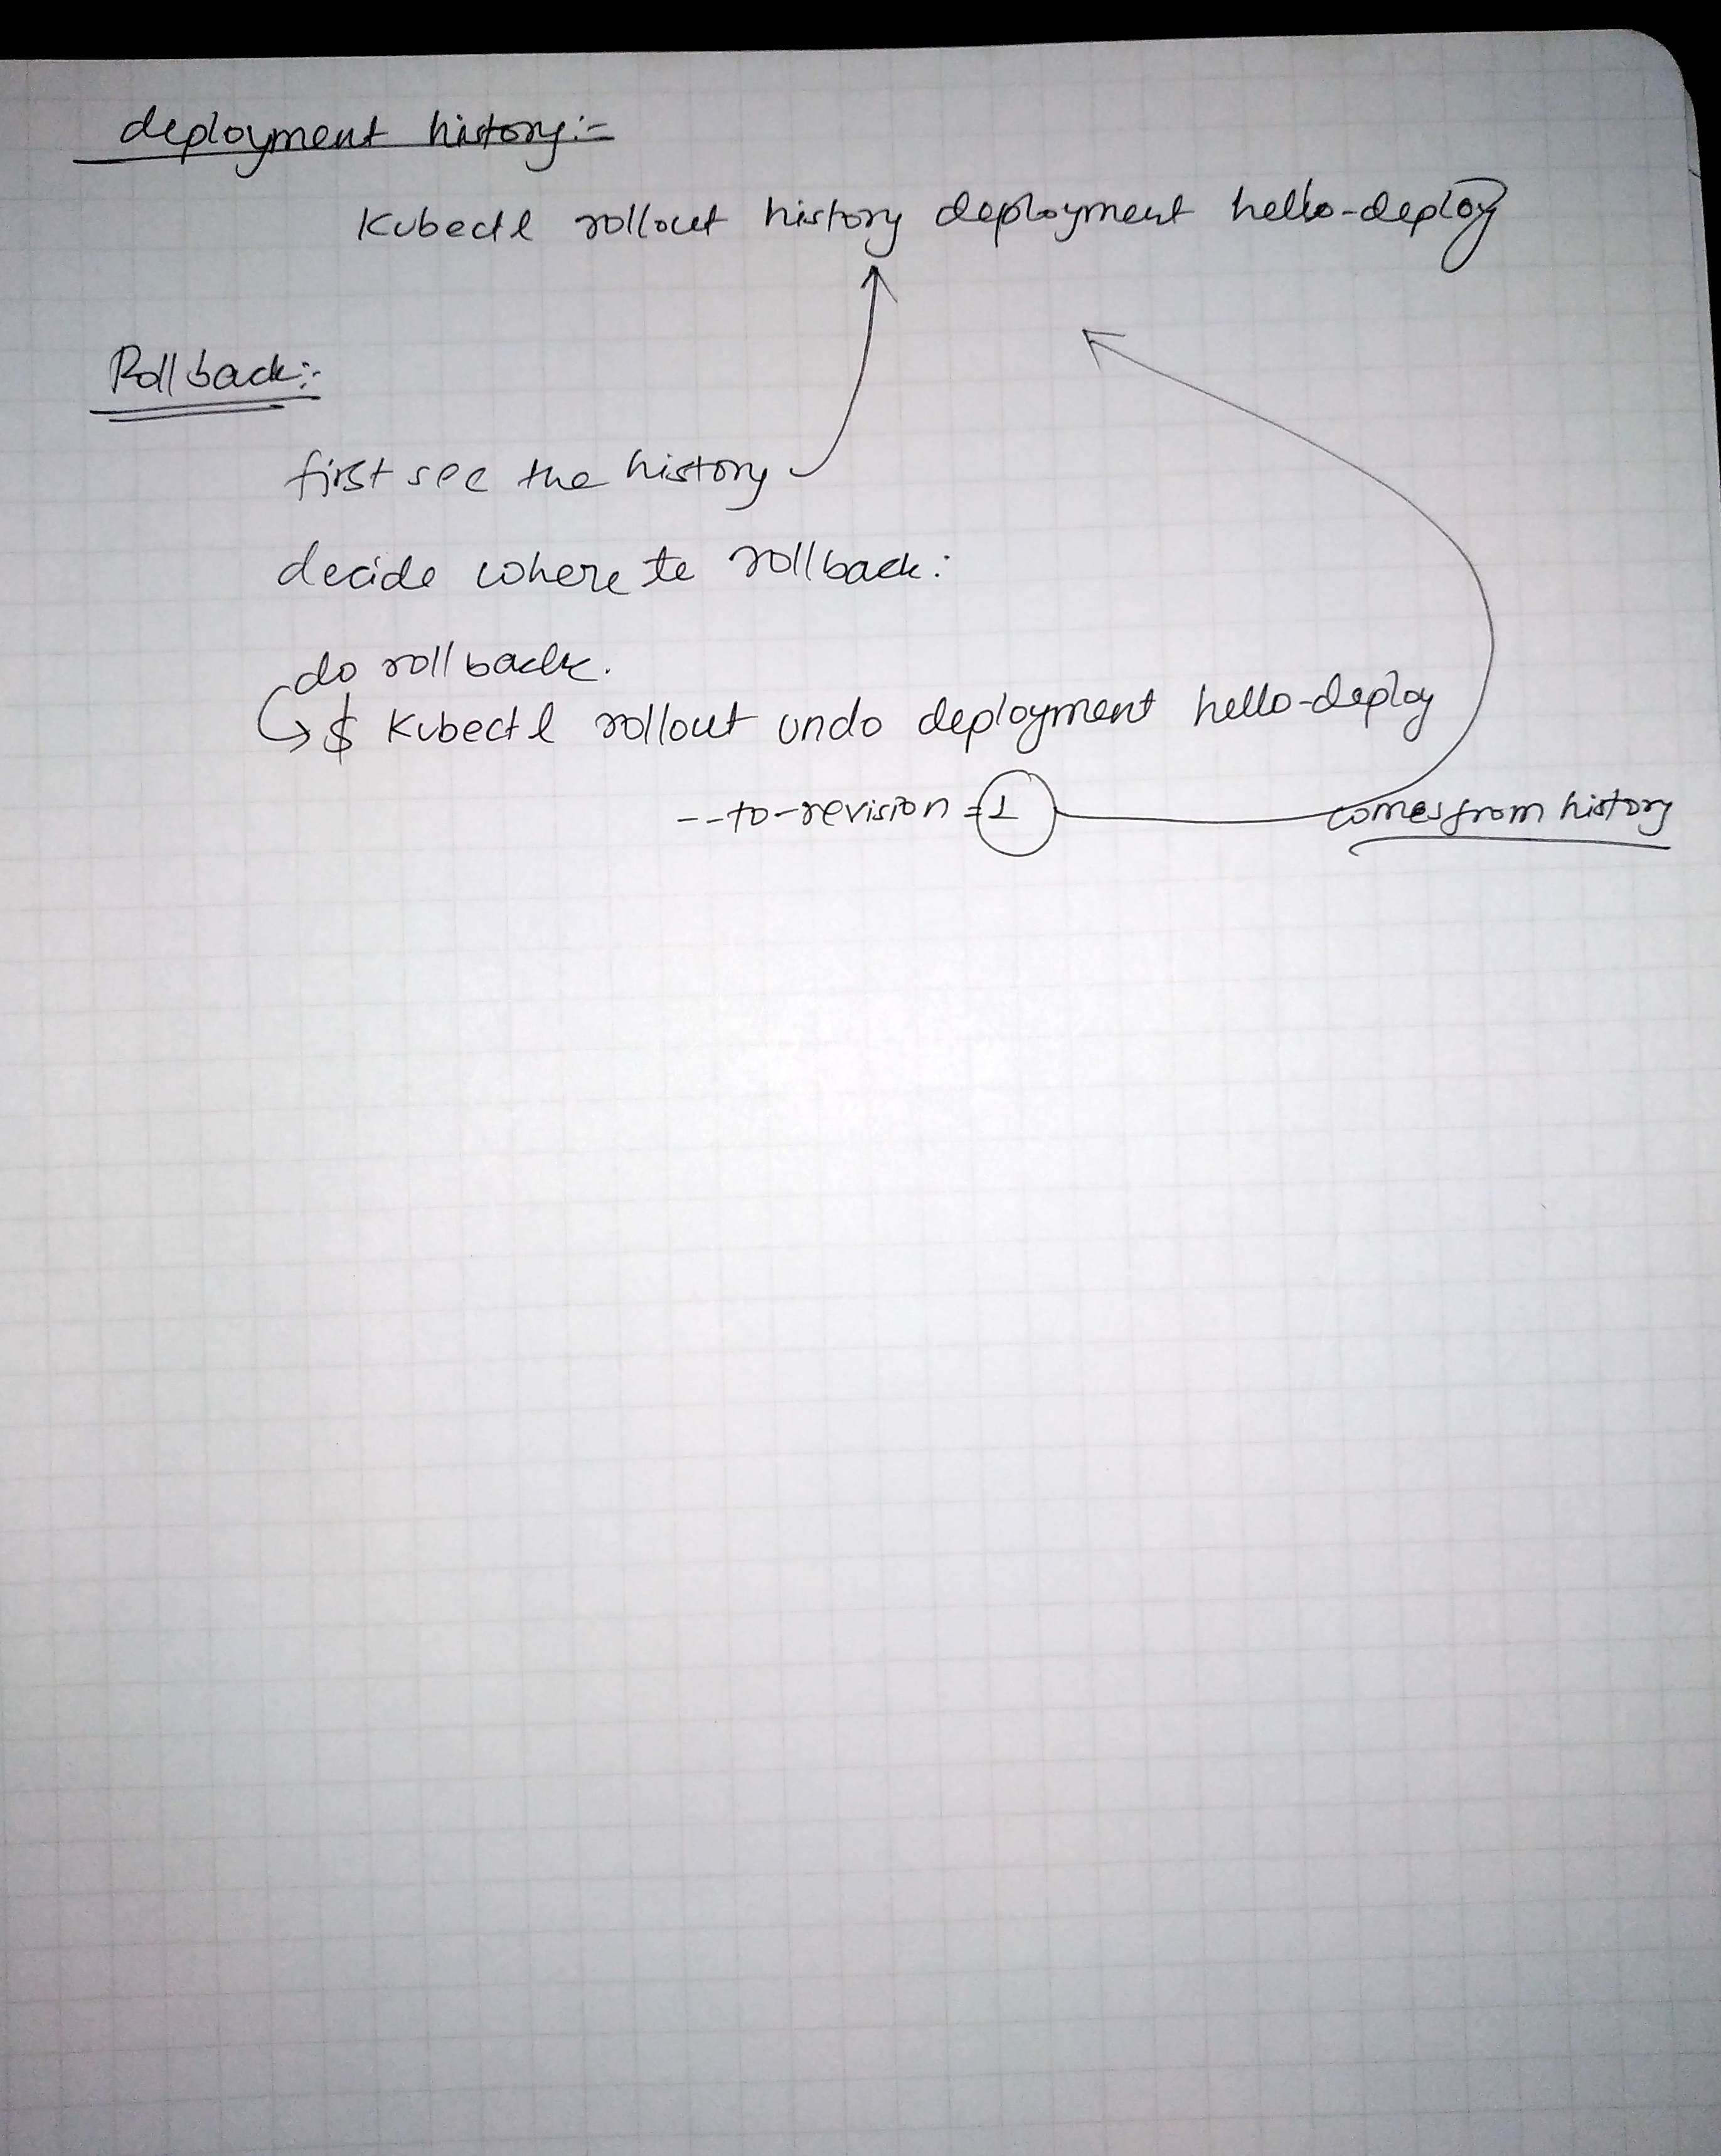 deployment history:-
Kubectl rollout history deployment hello-deploy
Rollback:-
first see the history
decide where to rollback:
do rollback.
$ Kubectl rollout undo deployment hello-deploy
--to-revision=1 comes from history